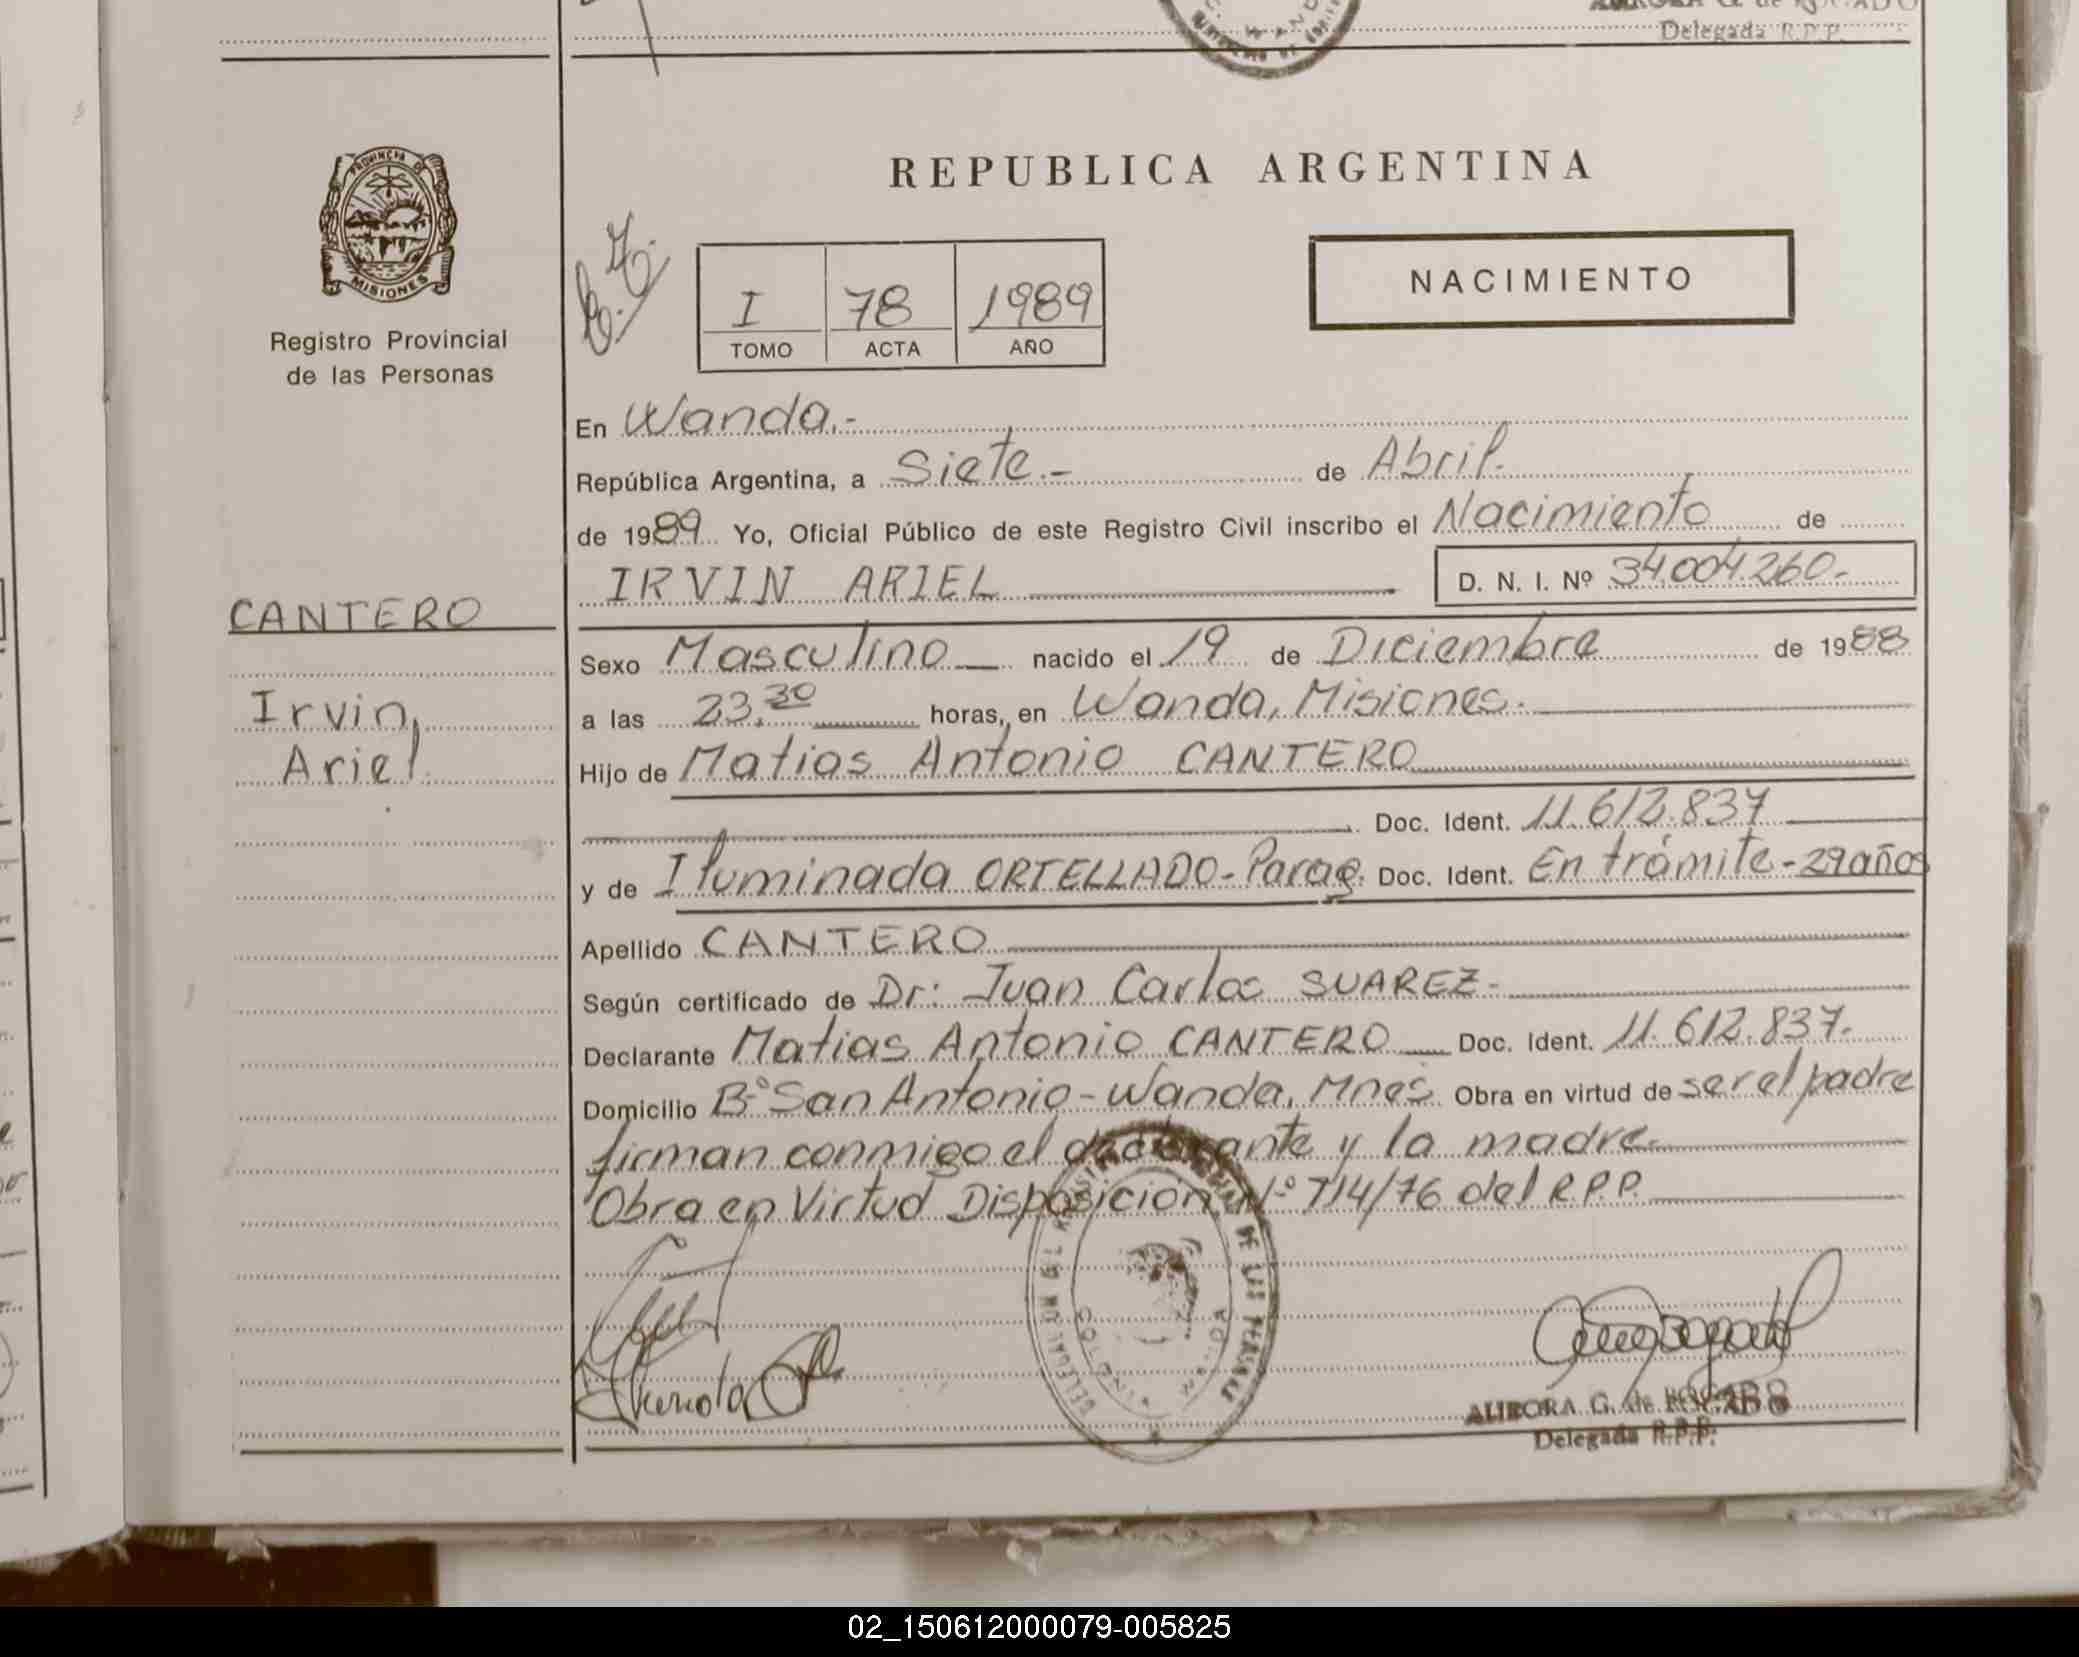 Delegada R.P.P.
PROVINCIA DE
MISIONES
Registro Provincial
de las Personas
REPUBLICA ARGENTINA
I 78 1989
TOMO ACTA AÑO
NACIMIENTO
En Wanda.-
República Argentina, a Siete.- de Abril.
de 1989. Yo, Oficial Público de este Registro Civil inscribo el Nacimiento de
IRVIN ARIEL D. N. I. Nº 34.004.260.-
CANTERO
Irvin,
Ariel.
Sexo Masculino nacido el 19 de Diciembre de 1988
a las 23.30 horas, en Wanda, Misiones.
Hijo de Matias Antonio CANTERO
Doc. Ident. 11.612.837
y de Iluminada ORTELLADO-Parag. Doc. Ident. En trámite-29años
Apellido CANTERO
Según certificado de Dr: Juan Carlos SUAREZ-
Declarante Matias Antonio CANTERO Doc. Ident. 11.612.837.
Domicilio Bº San Antonio-Wanda, Mnes. Obra en virtud de ser el padre
firman conmigo el declarante y la madre.
Obra en Virtud Disposición Nº 714/76 del R.P.P.
AURORA G. de BOGADO
Delegada R.P.P.
02_150612000079-005825